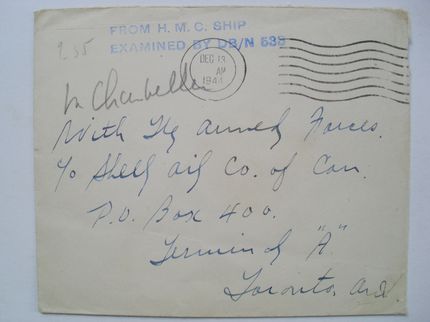 FROM H. M. C. SHIP
EXAMINED BY DB/N 538
235
DEC 13
AM
1944
With The Armed Forces.
c/o Shell Oil Co. of Can.
P.O. Box 400.
Terminal "A"
Toronto, Ont.